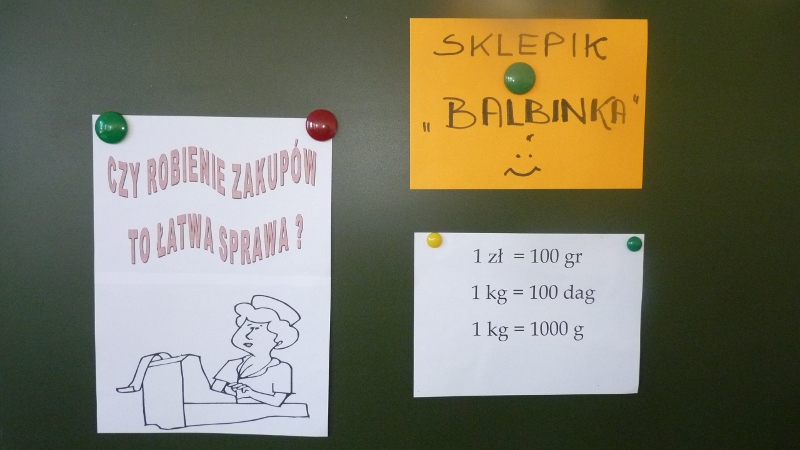 CZY ROBIENIE ZAKUPÓW
TO ŁATWA SPRAWA ?
SKLEPIK
„BALBINKA"
1 zł = 100 gr
1 kg = 100 dag
1 kg = 1000 g